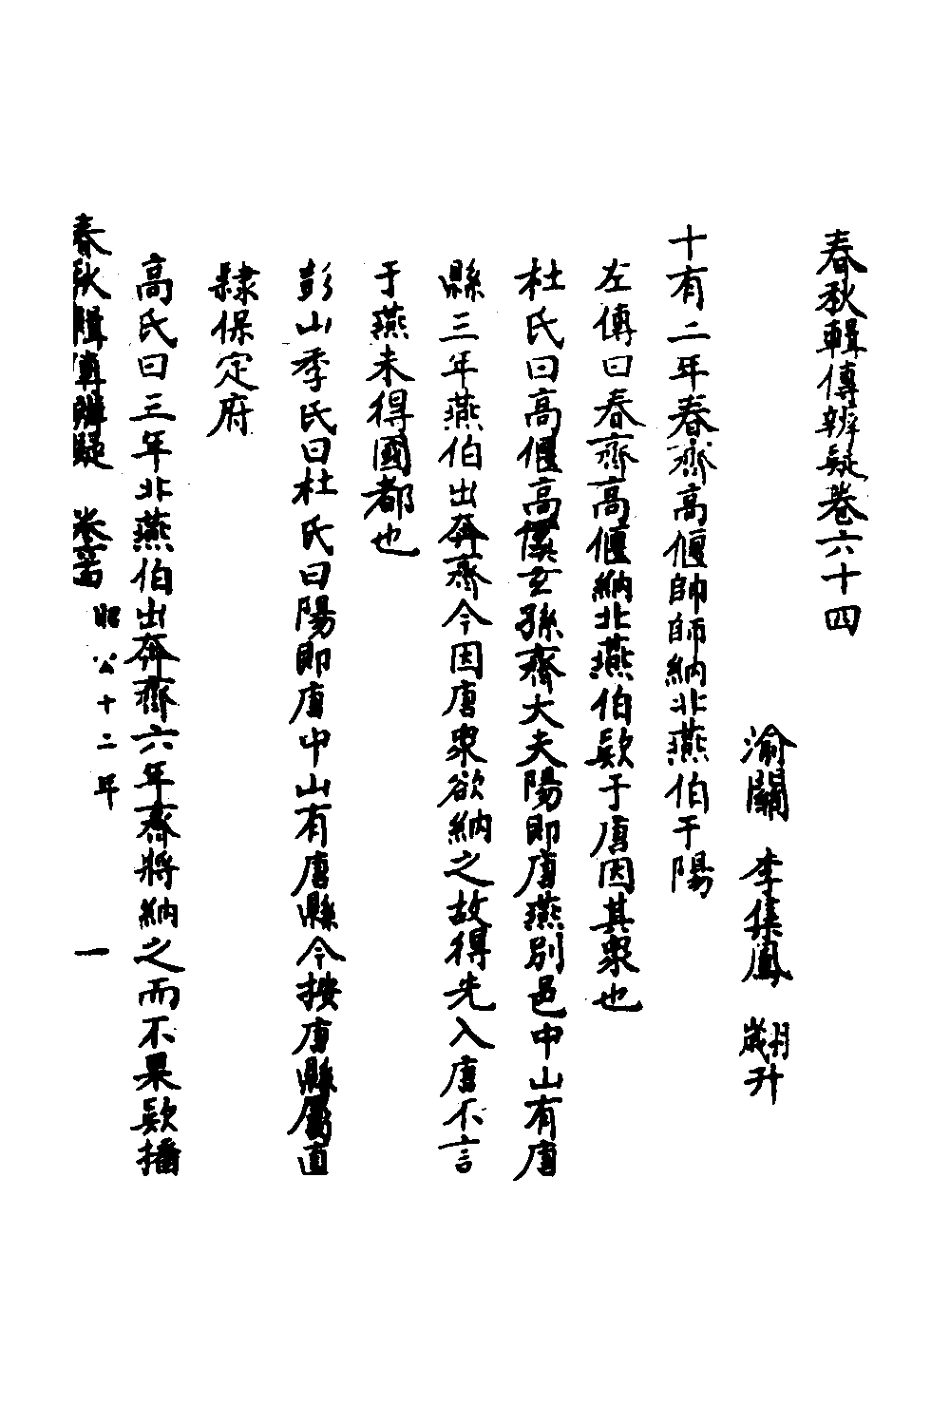 春秋輯傳辨疑卷六十四
渝關 李集鳳 翽升
十有二年春齊高偃帥師納北燕伯于陽
左傳曰春齊高偃納北燕伯欵于唐因其衆也
杜氏曰高偃高傒玄孫齊大夫陽即唐燕別邑中山有唐
縣三年燕伯出奔齊今因唐衆欲納之故得先入唐不言
于燕未得國都也
彭山季氏曰杜氏曰陽即唐中山有唐縣今按唐縣屬直
隸保定府
高氏曰三年北燕伯出奔齊六年齊將納之而不果欵播
春秋輯傳辨疑 卷六十四 昭公十二年 一